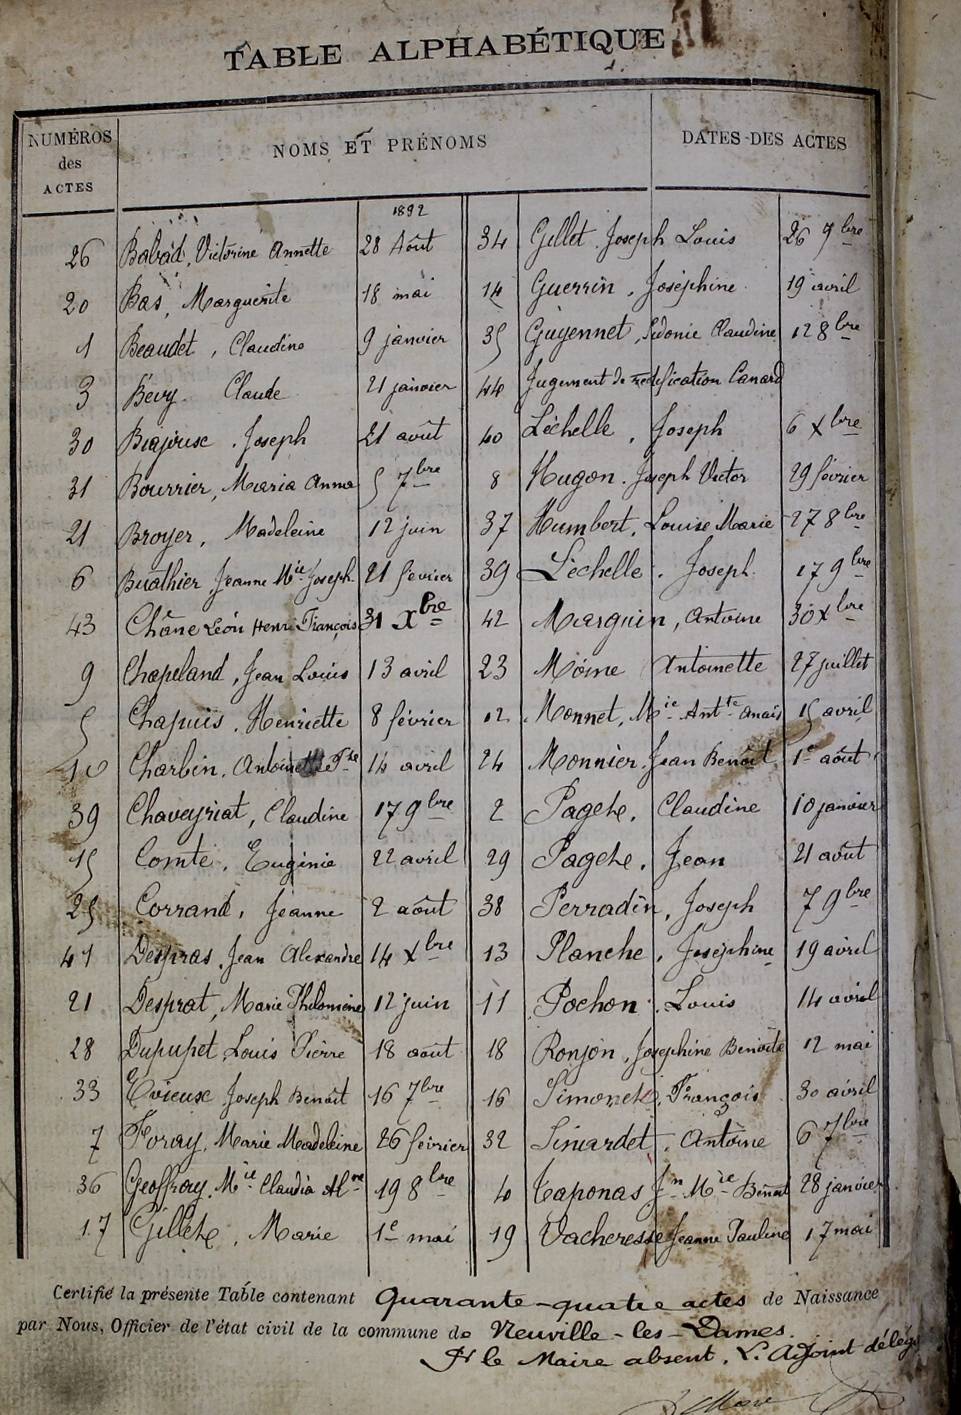 TABLE ALPHABÉTIQUE
NUMÉROS des ACTES
NOMS ET PRÉNOMS
DATES DES ACTES
1892
26 Babad, Victorine Annette 28 Août
20 Bas, Marguerite 18 mai
1 Beaudet, Claudine 9 janvier
3 Bévy Claude 21 janvier
30 Biajoux, Joseph 21 août
31 Bourrier, Maria Anna 5 7bre
21 Broyer, Madeleine 12 juin
6 Buathier Jeanne Mie Joseph 21 février
43 Châne Léon Henri François 31 Xbre
9 Chapeland, Jean Louis 13 avril
5 Chapuis, Henriette 8 février
10 Charbin, 14 avril
39 Chaveyriat, Claudine 17 9bre
15 Comte, Eugénie 22 avril
25 Corrand, Jeanne 2 août
41 Despras, Jean Alexandre 14 Xbre
21 Desprat, Marie Philomène 12 juin
28 Dupupet Louis Pierre 18 août
33 Evieux Joseph Benoît 16 7bre
7 Foray, Marie Madeleine 26 février
36 Geoffray, Mie Claudia 19 8bre
17 Gillet, Marie 1e mai
34 Gillet Joseph Louis 26 9bre
14 Guerrin, Joséphine 19 avril
35 Guyennet, Sidonie Claudine 12 8bre
44 Jugement de rectification Canard
40 Léchelle, Joseph 6 Xbre
8 Hugon Joseph Victor 29 février
37 Humbert, Louise Marie 27 8bre
39 Léchelle, Joseph 17 9bre
42 Marguin, Antoine 30 Xbre
23 Moine Antoinette 27 juillet
12 Monnet, Mie Antte Anaïs 15 avril
24 Monnier, Jean Benoît 1e août
2 Paget, Claudine 10 janvier
29 Paget, Jean 21 août
38 Perradin, Joseph 7 9bre
13 Planche, Joséphine 19 avril
11 Pochon, Louis 14 avril
18 Ronjon, Joséphine Benoîte 12 mai
16 Simonet, François 30 avril
32 Simardet, Antoine 6 7bre
4 Taponas Jn Mie Benoît 28 janvier
19 Vacheresse Jeanne Pauline 17 mai
Certifié la présente Table contenant Quarante-quatre actes de Naissance
par Nous, Officier de l'état civil de la commune de Neuville-les-Dames.
Pr le Maire absent, L'Adjoint délégué